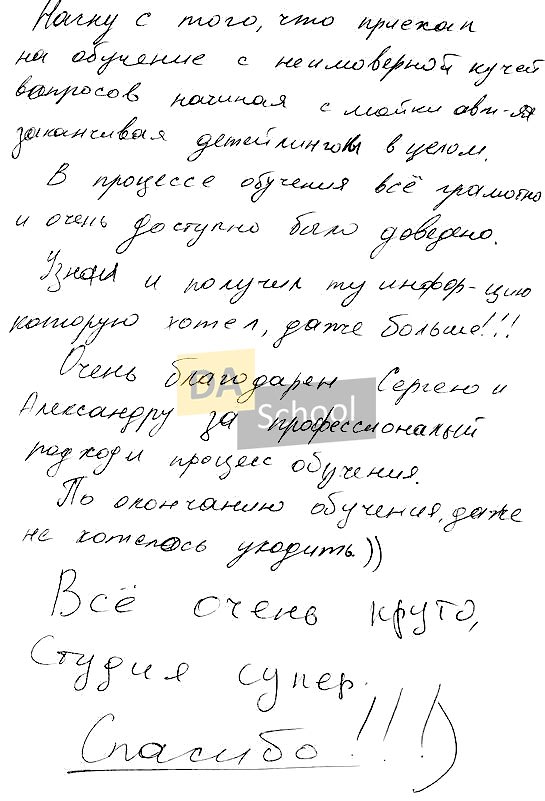 Начну с того, что приехал
на обучение с неимоверной кучей
вопросов начиная с мойки авт-ля
заканчивая детейлингом в целом.
В процессе обучения всё грамотно
и очень доступно было доведено.
Узнал и получил ту инфор-цию
которую хотел, даже больше!!!
Очень благодарен Сергею и
DA
Александру за профессиональй
School
подход и процесс обучения.
По окончанию обучения, даже
не хотелось уходить))
Всё очень круто,
Студия супер.
Спасибо!!!)